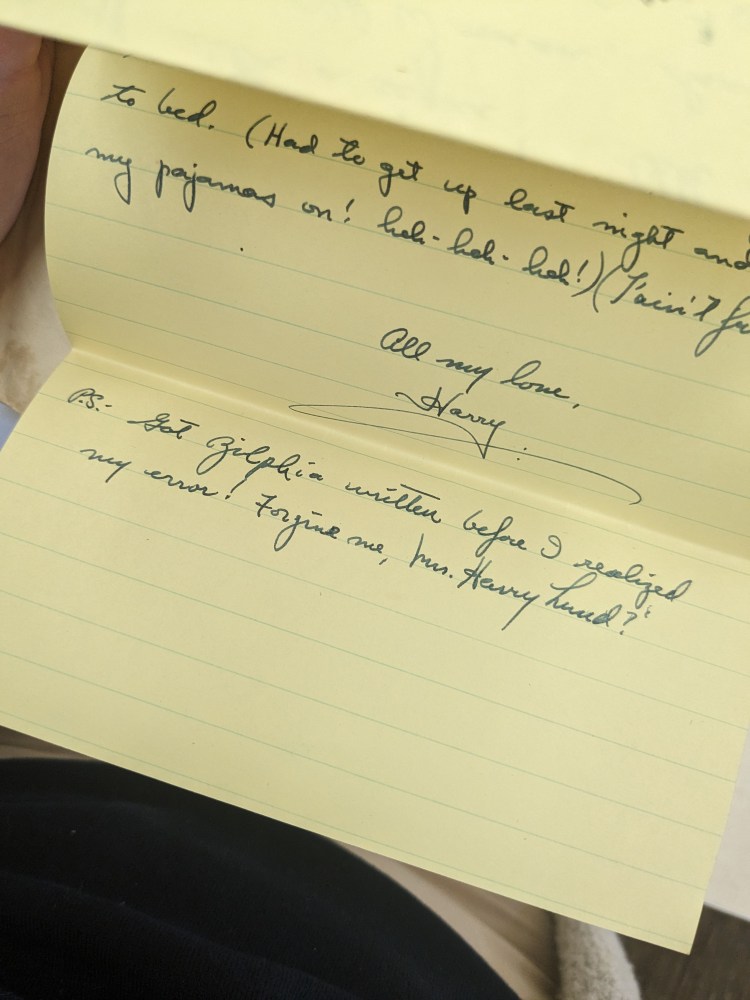 to bed. (Had to get up last night and
my pajamas on! heh-heh-heh!) (T'ain't
All my love,
Harry.
P.S.- Got Zilphia written before I realized
my error! Forgive me, Mrs. Harry Lund?